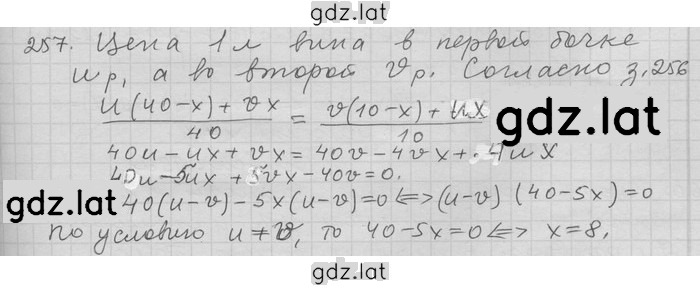 gdz.lat
257. Цена 1 л вина в первой бочке
u р, а во второй v р. Согласно з. 256
(u(40-x)+vx)/40 = (v(10-x)+ux)/10
gdz.lat
40u-ux+vx=40v-4vx+4ux
40u-5ux+5vx-40v=0.
gdz.lat
40(u-v)-5x(u-v)=0⇔(u-v)(40-5x)=0
По условию u≠v, то 40-5x=0⇔x=8.
gdz.lat